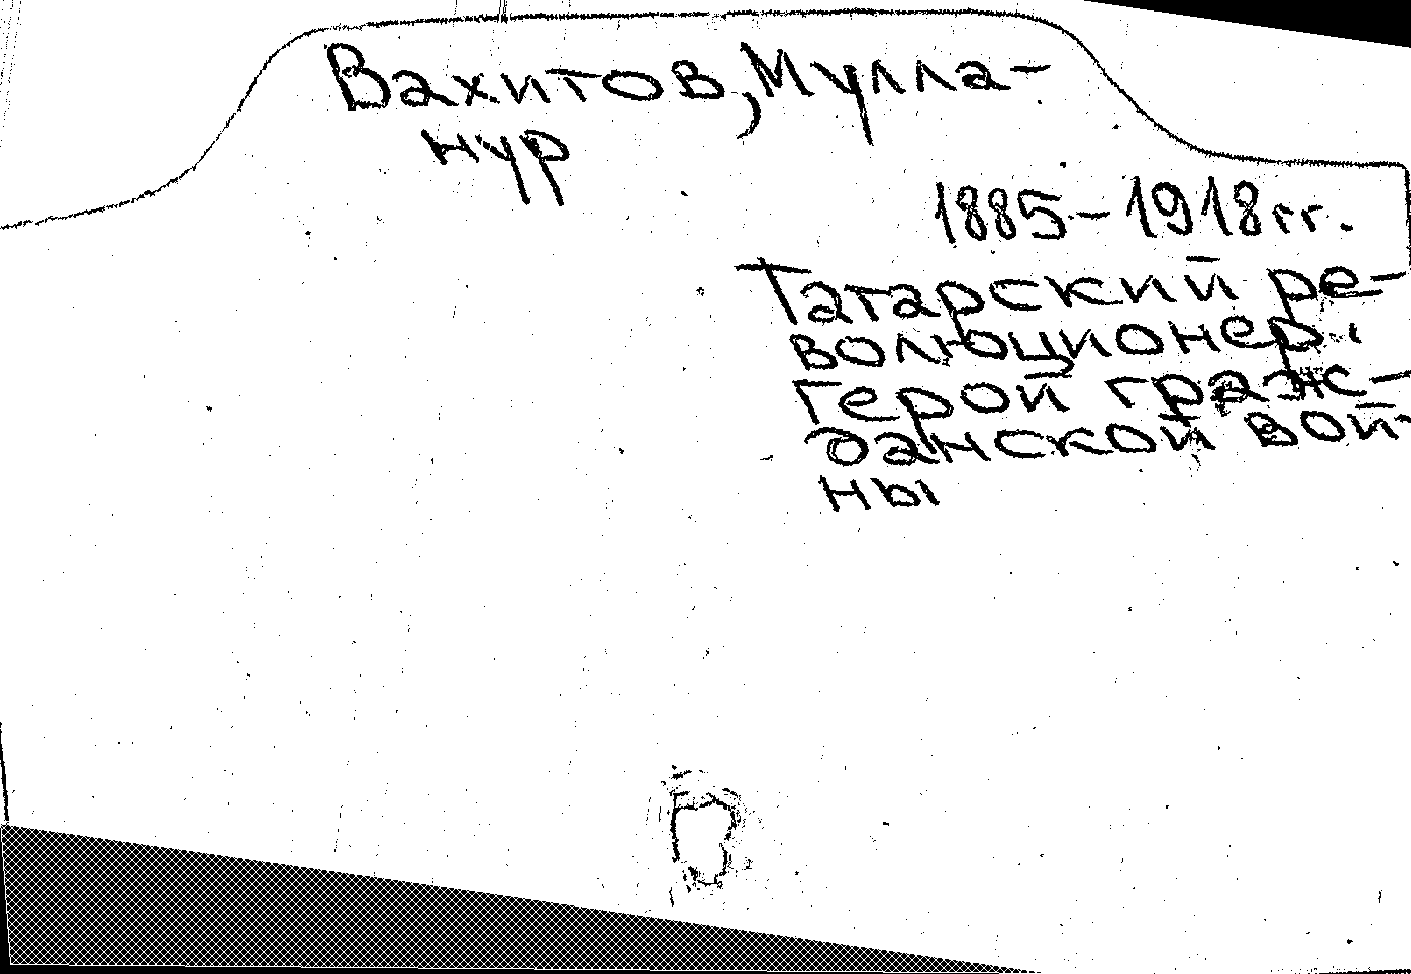 Вахитов, Мулла-
нур
1885-1918 гг.
Татарский ре-
волюционер.
Герой граж-
данской вой-
ны